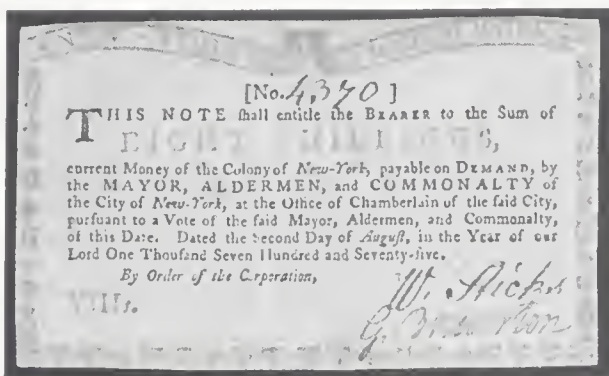 [No. 4370]
THIS NOTE shall entitle the BEARER to the Sum of
EIGHT SHILLINGS,
current Money of the Colony of New-York, payable on DEMAND, by
the MAYOR, ALDERMEN, and COMMONALTY of
the City of New-York, at the Office of Chamberlain of the said City,
pursuant to a Vote of the said Mayor, Aldermen, and Commonalty,
of this Date. Dated the Second Day of August, in the Year of our
Lord One Thousand Seven Hundred and Seventy-five.
By Order of the Corporation,
VIIIs.
W.
G.